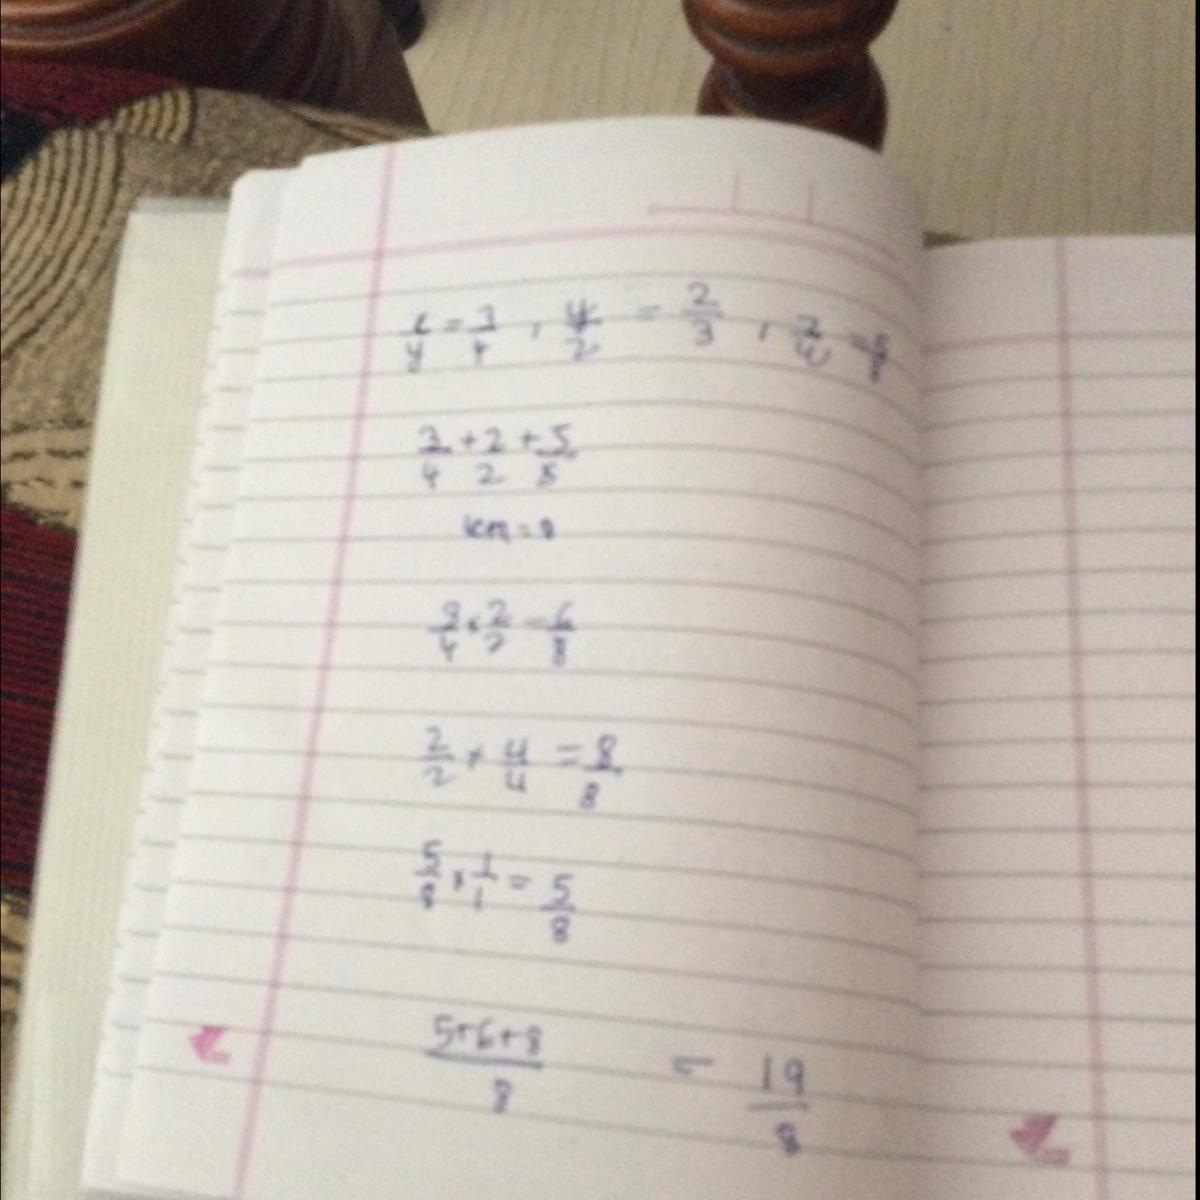 x/y = 3/4 , y/z = 2/3 , z/w = 5/8
3/4 + 2/2 + 5/8
LCM = 8
3/4 × 2/2 = 6/8
2/2 × 4/4 = 8/8
5/8 × 1/1 = 5/8
5+6+8/8 = 19/8